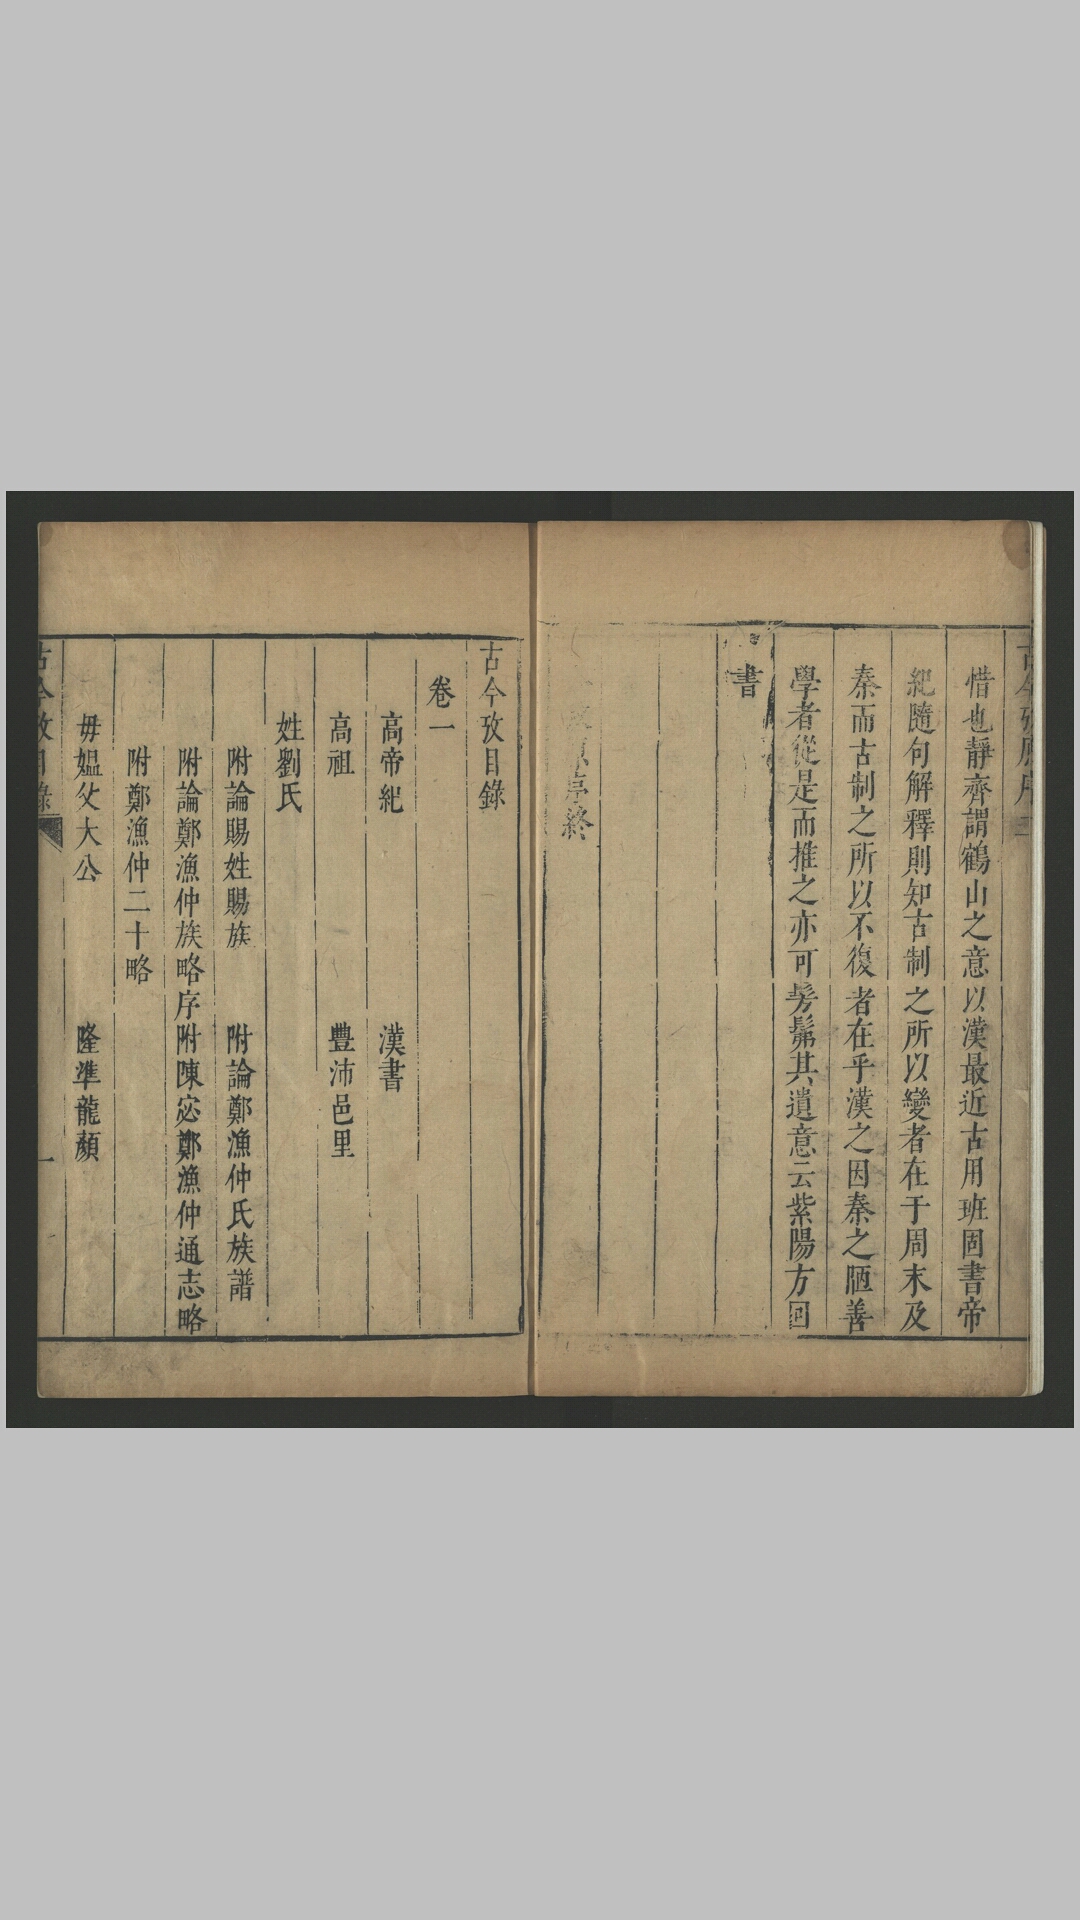 惜也靜齊謂鶴山之意以漢最近古用班固書帝
紀隨句解釋則知古制之所以變者在于周末及
秦而古制之所以不復者在乎漢之因秦之陋善
學者從是而推之亦可髣髴其遺意云紫陽方回
書
序終
古今攷目錄
卷一
高帝紀 漢書
高祖 豐沛邑里
姓劉氏
附論賜姓賜族 附論鄭漁仲氏族譜
附論鄭漁仲族略序附陳宓鄭漁仲通志略
附鄭漁仲二十略
毋媼父大公 隆準龍顏
古今攷目錄 一